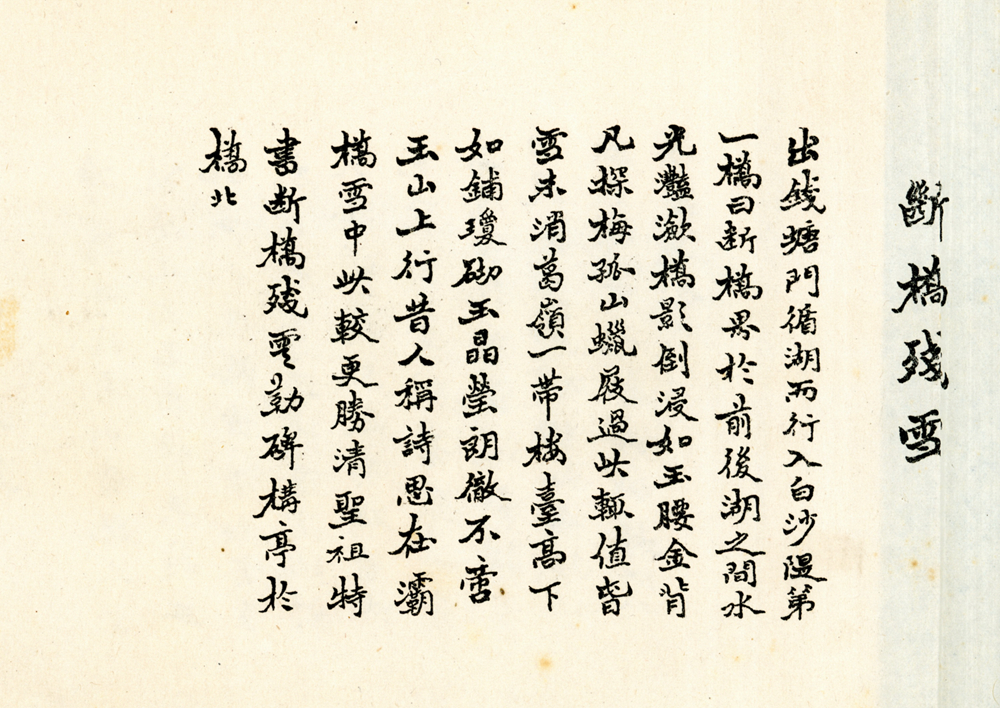 斷橋殘雪
出錢塘門循湖而行入白沙隄第
一橋曰断橋界於前後湖之間水
光灩瀲橋影倒浸如玉腰金背
凡探梅孤山蠟屐過此輒值春
雪未消葛嶺一帶樓臺高下
如鋪瓊砌玉晶瑩朗徹不啻
玉山上行昔人稱詩思在灞
橋雪中此較更勝清聖祖特
書断橋殘雪勒碑構亭於
橋北